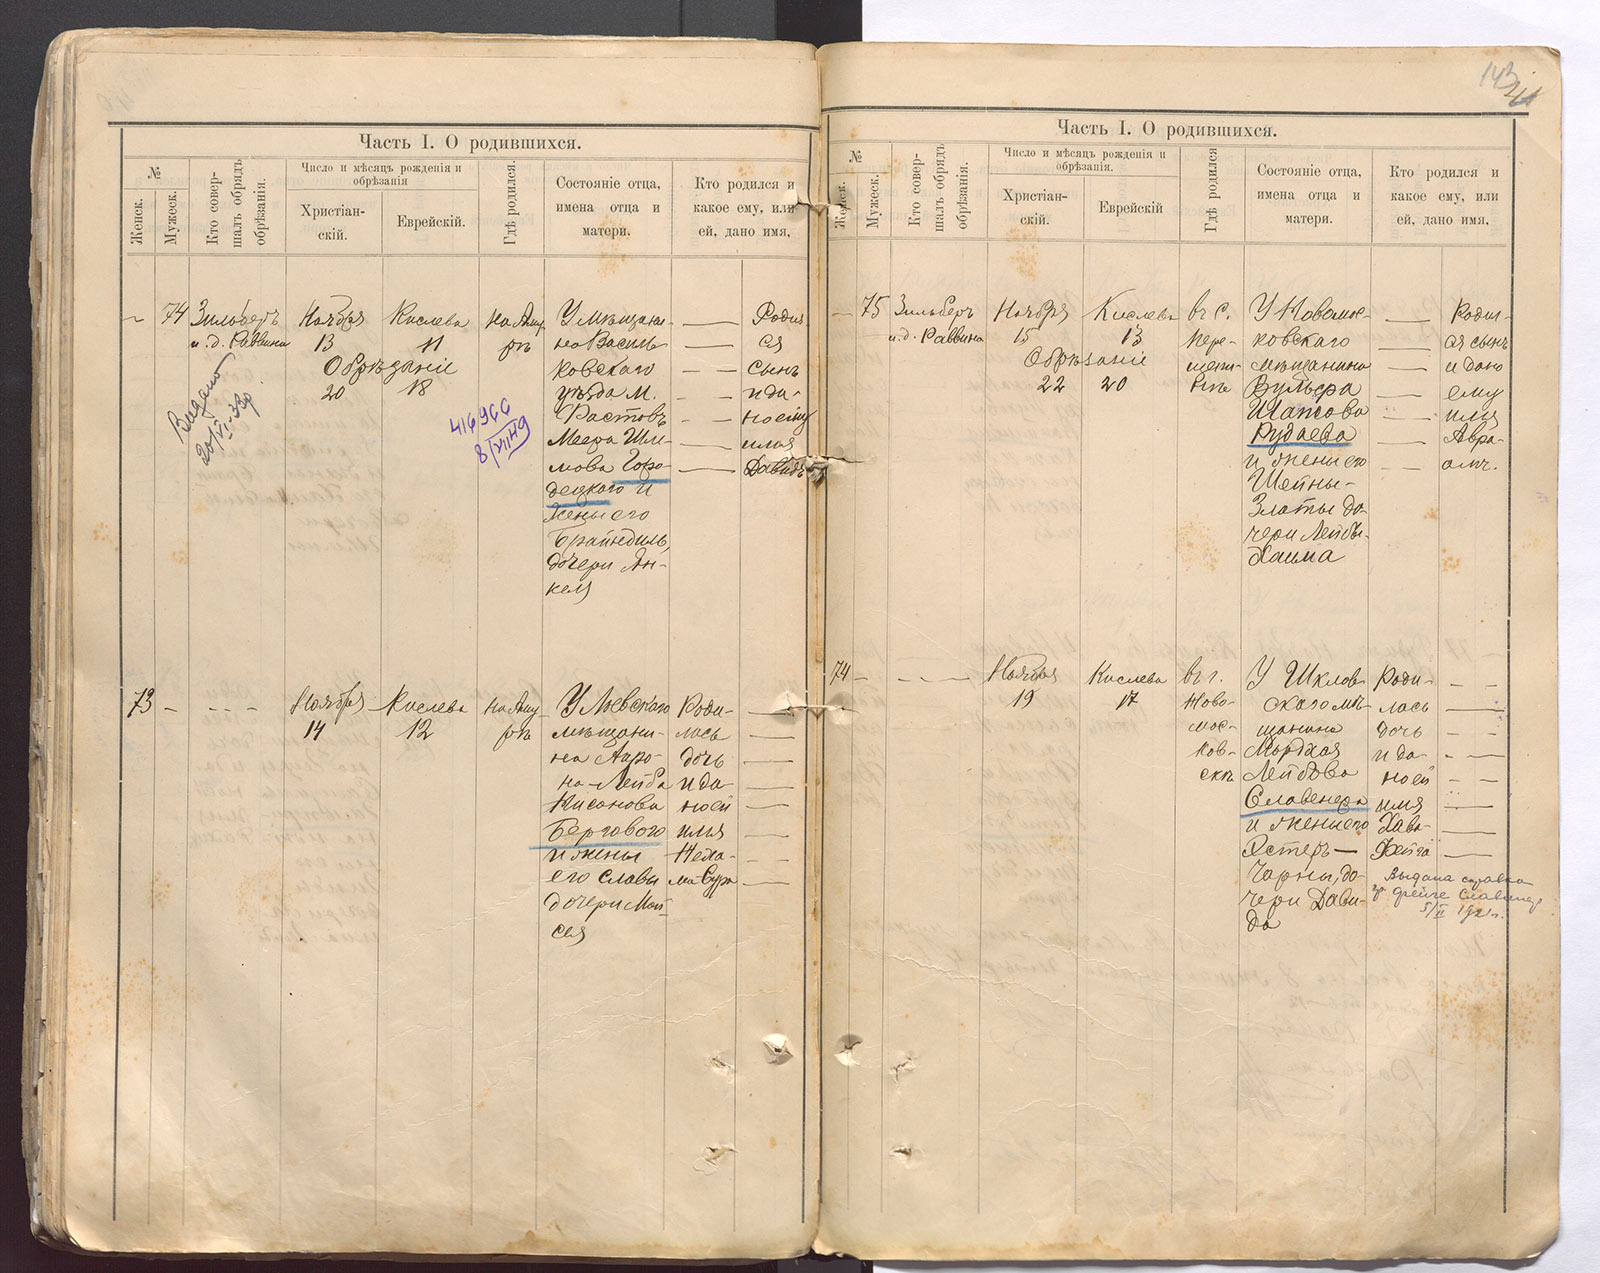 143
41
Часть I. О родившихся.
№
Женск.
Мужеск.
Кто совер-
шалъ обрядъ
обрѣзанія.
Число и мѣсяцъ рожденія и
обрѣзанія
Христіан-
скій.
Еврейскій.
Гдѣ родился.
Состояніе отца,
имена отца и
матери.
Кто родился и
какое ему, или
ей, дано имя,
74
Зильберъ
и. д. Раввина
Ноября
13
Кислева
11
Обрѣзаніе
20
18
На Аму-
рѣ
У мѣщани-
на Василь-
ковскаго
уѣзда М.
Фастовъ
Меера Шли-
мова Горо-
децкаго и
жены его
Брайндиль,
дочери Ян-
келя
Родил
ся
сынъ
и да-
но ему
имя
Давидъ
Видано
20/VI-33р
416966
8/VII49
73
Ноября
14
Кислева
12
На Аму-
рѣ
У Лѣвскаго
мѣщани-
на Аро-
на-Лейба
Нисанова
Бергового
и жены
его Славы
дочери Мой-
сея
Роди-
лась
дочь
и да-
но ей
имя
Неха-
ма Сура
Часть I. О родившихся.
№
Женск.
Мужеск.
Кто совер-
шалъ обрядъ
обрѣзанія.
Число и мѣсяцъ рожденія и
обрѣзанія.
Христіан-
скій.
Еврейскій
Гдѣ родился
Состояніе отца,
имена отца и
матери.
Кто родился и
какое ему, или
ей, дано имя,
75
Зильберъ
и. д. Раввина
Ноября
15
Кислева
13
Обрѣзаніе
22
20
въ с.
Пере-
щепи-
нѣ
У Новомос-
ковскаго
мѣщанина
Вульфа
Шапсова
Рудаева
и жены его
Шейны-
Златы до-
чери Лейбы-
Хаима
Родил-
ся сынъ
и дано
ему
имя
Авра-
амъ.
74
Ноября
19
Кислева
17
въ г.
Ново-
мос-
ков-
скѣ
У Шклов-
скаго мѣ-
щанина
Мордхая
Лейбова
Славенера
и жены его
Эстеръ-
Чарны, до-
чери Дави-
да
Роди-
лась
дочь
и да-
но ей
имя
Хава
Фейга
Выдана справка
гр. Фейге Славинер
5/II 192 г.